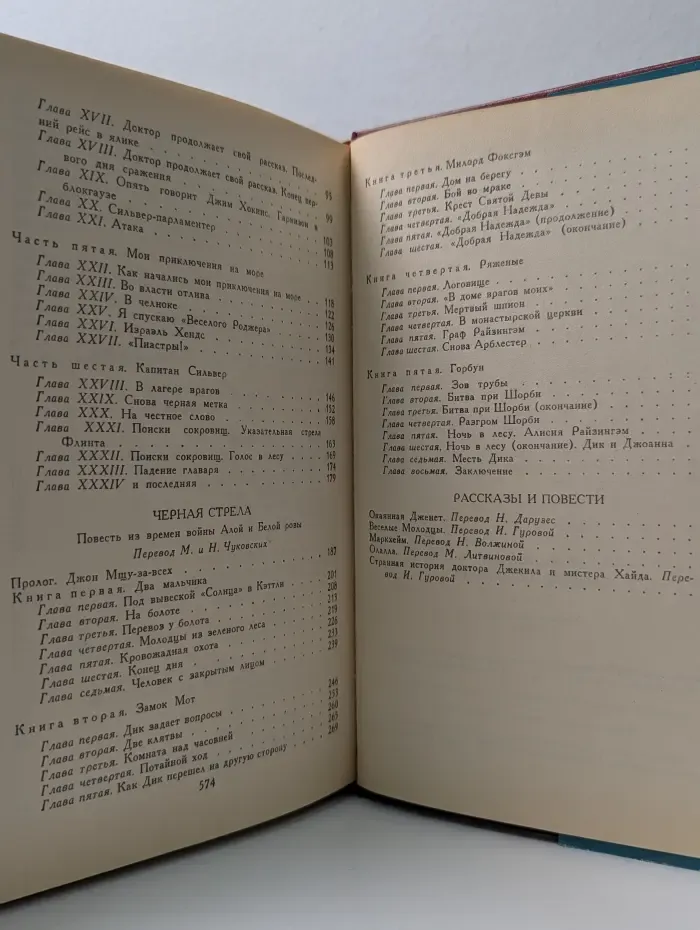 Глава XVII. Доктор продолжает свой рассказ. Послед-
ний рейс в ялике . . . . . . . . . . 95
Глава XVIII. Доктор продолжает свой рассказ. Конец пер-
вого дня сражения . . . . . . . . . . 99
Глава XIX. Опять говорит Джим Хокинс. Гарнизон в
блокгаузе . . . . . . . . . . 103
Глава XX. Сильвер-парламентер . . . . . . . 108
Глава XXI. Атака . . . . . . . . . . 113
Часть пятая. Мои приключения на море
Глава XXII. Как начались мои приключения на море . . 118
Глава XXIII. Во власти отлива . . . . . . . 122
Глава XXIV. В челноке . . . . . . . . . 126
Глава XXV. Я спускаю «Веселого Роджера» . . . . 130
Глава XXVI. Израэль Хендс . . . . . . . . 134
Глава XXVII. «Пиастры!» . . . . . . . . 141
Часть шестая. Капитан Сильвер
Глава XXVIII. В лагере врагов . . . . . . . 146
Глава XXIX. Снова черная метка . . . . . . 152
Глава XXX. На честное слово . . . . . . . 158
Глава XXXI. Поиски сокровищ. Указательная стрела
Флинта . . . . . . . . . . 163
Глава XXXII. Поиски сокровищ. Голос в лесу . . . 169
Глава XXXIII. Падение главаря . . . . . . . 174
Глава XXXIV и последняя . . . . . . . . 179
ЧЕРНАЯ СТРЕЛА
Повесть из времен войны Алой и Белой розы
Перевод М. и Н. Чуковских
Пролог. Джон Мщу-за-всех . . . . . . . . 187
Книга первая. Два мальчика
Глава первая. Под вывеской «Солнца» в Кэттли . . . 201
Глава вторая. На болоте . . . . . . . . 208
Глава третья. Перевоз у болота . . . . . . . 213
Глава четвертая. Молодцы из зеленого леса . . . . 219
Глава пятая. Кровожадная охота . . . . . . . 226
Глава шестая. Конец дня . . . . . . . . 233
Глава седьмая. Человек с закрытым лицом . . . . 239
Книга вторая. Замок Мот
Глава первая. Дик задает вопросы . . . . . . 246
Глава вторая. Две клятвы . . . . . . . . 253
Глава третья. Комната над часовней . . . . . . 260
Глава четвертая. Потайной ход . . . . . . . 265
Глава пятая. Как Дик перешел на другую сторону . . 269
574
Книга третья. Милорд Фоксгэм
Глава первая. Дом на берегу . . . . . . . .
Глава вторая. Бой во мраке . . . . . . . .
Глава третья. Крест Святой Девы . . . . . .
Глава четвертая. «Добрая Надежда» . . . . . .
Глава пятая. «Добрая Надежда» (продолжение) . . .
Глава шестая. «Добрая Надежда» (окончание) . . .
Книга четвертая. Ряженые
Глава первая. Логовище . . . . . . . . .
Глава вторая. «В доме врагов моих» . . . . . .
Глава третья. Мертвый шпион . . . . . . .
Глава четвертая. В монастырской церкви . . . . .
Глава пятая. Граф Райзингэм . . . . . . . .
Глава шестая. Снова Арблестер . . . . . . .
Книга пятая. Горбун
Глава первая. Зов трубы . . . . . . . . .
Глава вторая. Битва при Шорби . . . . . . .
Глава третья. Битва при Шорби (окончание) . . . .
Глава четвертая. Разгром Шорби . . . . . . .
Глава пятая. Ночь в лесу. Алисия Райзингэм . . . .
Глава шестая. Ночь в лесу (окончание). Дик и Джоанна . .
Глава седьмая. Месть Дика . . . . . . . .
Глава восьмая. Заключение . . . . . . . .
РАССКАЗЫ И ПОВЕСТИ
Окаянная Дженет. Перевод Н. Дарузес . . . . .
Веселые Молодцы. Перевод И. Гуровой . . . . .
Маркхейм. Перевод Н. Волжиной . . . . . . .
Олалла. Перевод М. Литвиновой . . . . . . .
Странная история доктора Джекила и мистера Хайда. Пере-
вод И. Гуровой . . . . . . . . . .